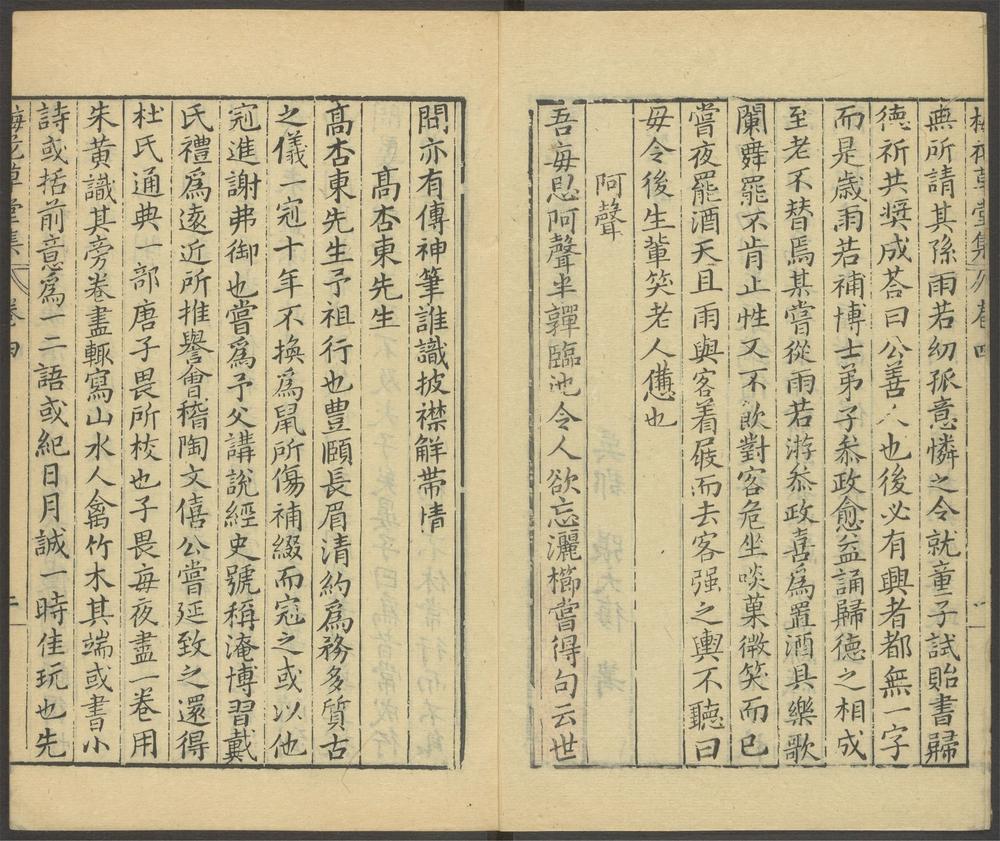 梅花草堂集 卷四 一
無所請其孫雨若幼孤意憐之令就童子試貽書歸
德祈共奬成荅曰公善人也後必有興者都無一字
而是歲雨若補博士弟子叅政愈益誦歸德之相成
至老不替焉某嘗從雨若游叅政喜爲置酒具樂歌
闌舞罷不肯止性又不飲對客危坐啖菓微笑而已
嘗夜罷酒天且雨與客着屐而去客强之輿不聽曰
毋令後生輩笑老人憊也
阿聲
吾每思阿聲半嚲臨池令人欲忘灑櫛嘗得句云世
間亦有傳神筆誰識披襟觧帶情
高杏東先生
高杏東先生予祖行也豊頤長眉清約爲務多質古
之儀一冠十年不換爲鼠所傷補綴而冠之或以他
冠進謝弗御也嘗爲予父講說經史號稱淹博習戴
氏禮爲遠近所推譽會稽陶文僖公嘗延致之還得
杜氏通典一部唐子畏所校也子畏每夜盡一卷用
朱黃識其旁卷盡輒寫山水人禽竹木其端或書小
詩或括前意爲一二語或紀日月誠一時佳玩也先
梅花草堂集 卷四 二